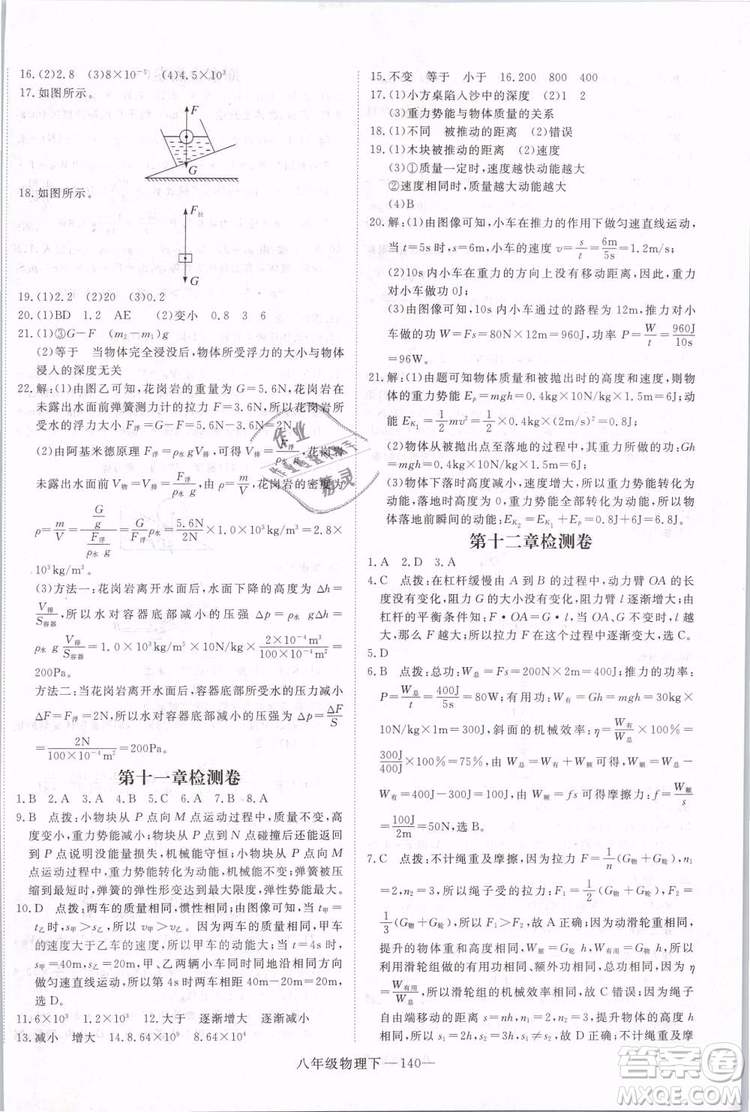 16.(2)2.8 (3)8×10⁻³ (4)4.5×10³
17.如图所示。
F
G
18.如图所示。
F拉
G
19.(1)2.2 (2)20 (3)0.2
20.(1)BD 1.2 AE (2)变小 3 6 8
21.(1)③G-F (m₂-m₁)g
(2)等于 当物体完全浸没后,物体所受浮力的大小与物体
浸入的深度无关
22.解:(1)由图乙可知,花岗岩的重量为G=5.6N,花岗岩在
未露出水面前弹簧测力计的拉力为F=3.6N,所以花岗岩
所受水的浮力大小F浮=G-F=5.6N-3.6N=2N。
(2)由阿基米德原理 F浮=ρ水gV排,得V排=F浮/ρ水g,花岗岩在
未露出水面前V物=V排=F浮/ρ水g,故花岗岩的密度为
ρ=m/V=(G/g)/(F浮/ρ水g)=G/F浮·ρ水=5.6N/2N×1.0×10³kg/m³=2.8×
10³kg/m³。
(3)方法一:花岗岩离开水面后,水面下降的高度为Δh=
V排/S容器,所以水对容器底部减小的压强 Δp=ρ水gΔh=
ρ水g V排/S容器=1.0×10³kg/m³×10N/kg×2×10⁻⁴m³/100×10⁻⁴m²=
200Pa。
方法二:当花岗岩离开水面后,容器底部所受水的压力减小
ΔF=F浮=2N,所以水对容器底部减小的压强为 Δp=ΔF/S
=2N/100×10⁻⁴m²=200Pa。
第十一章检测卷
1.B 2.A 3.A 4.B 5.A 6.B 7.B 8.A
9.B 点拨:小物块从P点向M点运动过程中,质量不变,高
度减小,重力势能减小;小物块从P点运动到与弹簧碰撞前
的过程中没有能量损失,机械能守恒;小物块与弹簧碰撞后
的一段运动过程中,动能转化为弹性势能;弹簧被压缩后,弹簧被
压缩到最短时,弹簧的弹性形变达到最大限度,弹性势能最大。
10.D 点拨:两车的质量相同,惯性相同;由图像可知,t甲=
t乙时,s甲>s乙,又因为两车均做匀速直线运动,所以甲车
的速度大于乙车的速度,所以甲车的动能大;当t=4s时,
s甲=40m,s乙=20m,甲、乙两车若同时同地沿同方向开始
做直线运动,所以第4s时两车相距40m-20m=20m。
故选D。
11.6×10³ 6×10³ 12.大于 逐渐增大 逐渐增大
13.减小 增大 14.8.64×10⁹ 8.64×10⁹
15.不变 等于 小于 16.200 800 400
17.(1)小方桌陷入沙中的深度 (2)1 2
(3)重力势能与物体质量的关系
18.(1)不同 被推动的距离 (2)错误
19.(1)木块被推动的距离 (2)速度
(3)①质量一定时,速度越快动能越大
②速度相同时,质量越大动能越大
(4)B
20.解:(1)由图像可知,小车在推力的作用下做匀速直线运动,
当t=5s时,s=6m,小车的速度v=s/t=6m/5s=1.2m/s;
(2)10s内小车在重力的方向上没有移动距离,所以重力
对小车做的功为0J;
(3)由图像可知,小车在10s内通过的路程为12m,推力对
小车做的功 W=Fs=80N×12m=960J,功率 P=W/t=960J/10s
=96W。
21.解:(1)由题可知物体质量和被抛出时的高度和速度,则物
体的重力势能Eₚ=mgh=0.4kg×10N/kg×1.5m=6J,动
能E_K₁=1/2mv²=1/2×0.4kg×(2m/s)²=0.8J。
(2)物体从被抛出点至落地的过程中,重力做的功:Gh=
mgh=0.4kg×10N/kg×1.5m=6J。
(3)物体下落过程中,高度逐渐减小,速度逐渐增大,重力势
能逐渐转化为动能,落地时,重力势能全部转化为动能,故
物体落地前瞬间具有的动能:E_K₂=E_K₁+Eₚ=0.8J+6J=6.8J。
第十二章检测卷
1.A 2.D 3.A
4.C 点拨:在杠杆缓慢由A到B的过程中,动力臂OA的长
度没有变化,阻力G的大小没有变化,而阻力臂l却逐渐增大;由
杠杆的平衡条件知:F·OA=G·l,当OA、G不变时,l
越大,那么F越大;所以拉力F在这个过程中逐渐变大,选C。
5.D
6.B 点拨:总功:W总=Fs=200N×2m=400J,推力的功率
P=W总/t=400J/5s=80W;有用功:W有用=Gh=mgh=30kg×
10N/kg×1m=300J,斜面的机械效率:η=W有用/W总×100%=
300J/400J×100%=75%;克服摩擦做的额外功:W额=W总-
W有用=400J-300J=100J,由W额=fs可得摩擦力:f=W额/s=
100J/2m=50N,选B。
7.C 点拨:不计绳重及摩擦,因为拉力F=1/n(G物+G轮),n₁=
2,n₂=3,所以绳端的拉力:F₁=1/2(G物+G轮),F₂=
1/3(G物+G轮),所以F₁>F₂,故A正确;因为动滑轮重相同,
提升的物体重和高度相同,W额=G轮h,W有用=G物h,所以
利用滑轮组做的有用功相同、额外功相同,总功相同;由η=
W有用/W总可知,所以滑轮组的机械效率相同,故C错误;因为绳子
自由端移动的距离s=nh,n₁=2,n₂=3,提升物体的高度h
相同,所以s₁=2h,s₂=3h,则s₁≠s₂,故B正确;因为
八年级物理下—140—